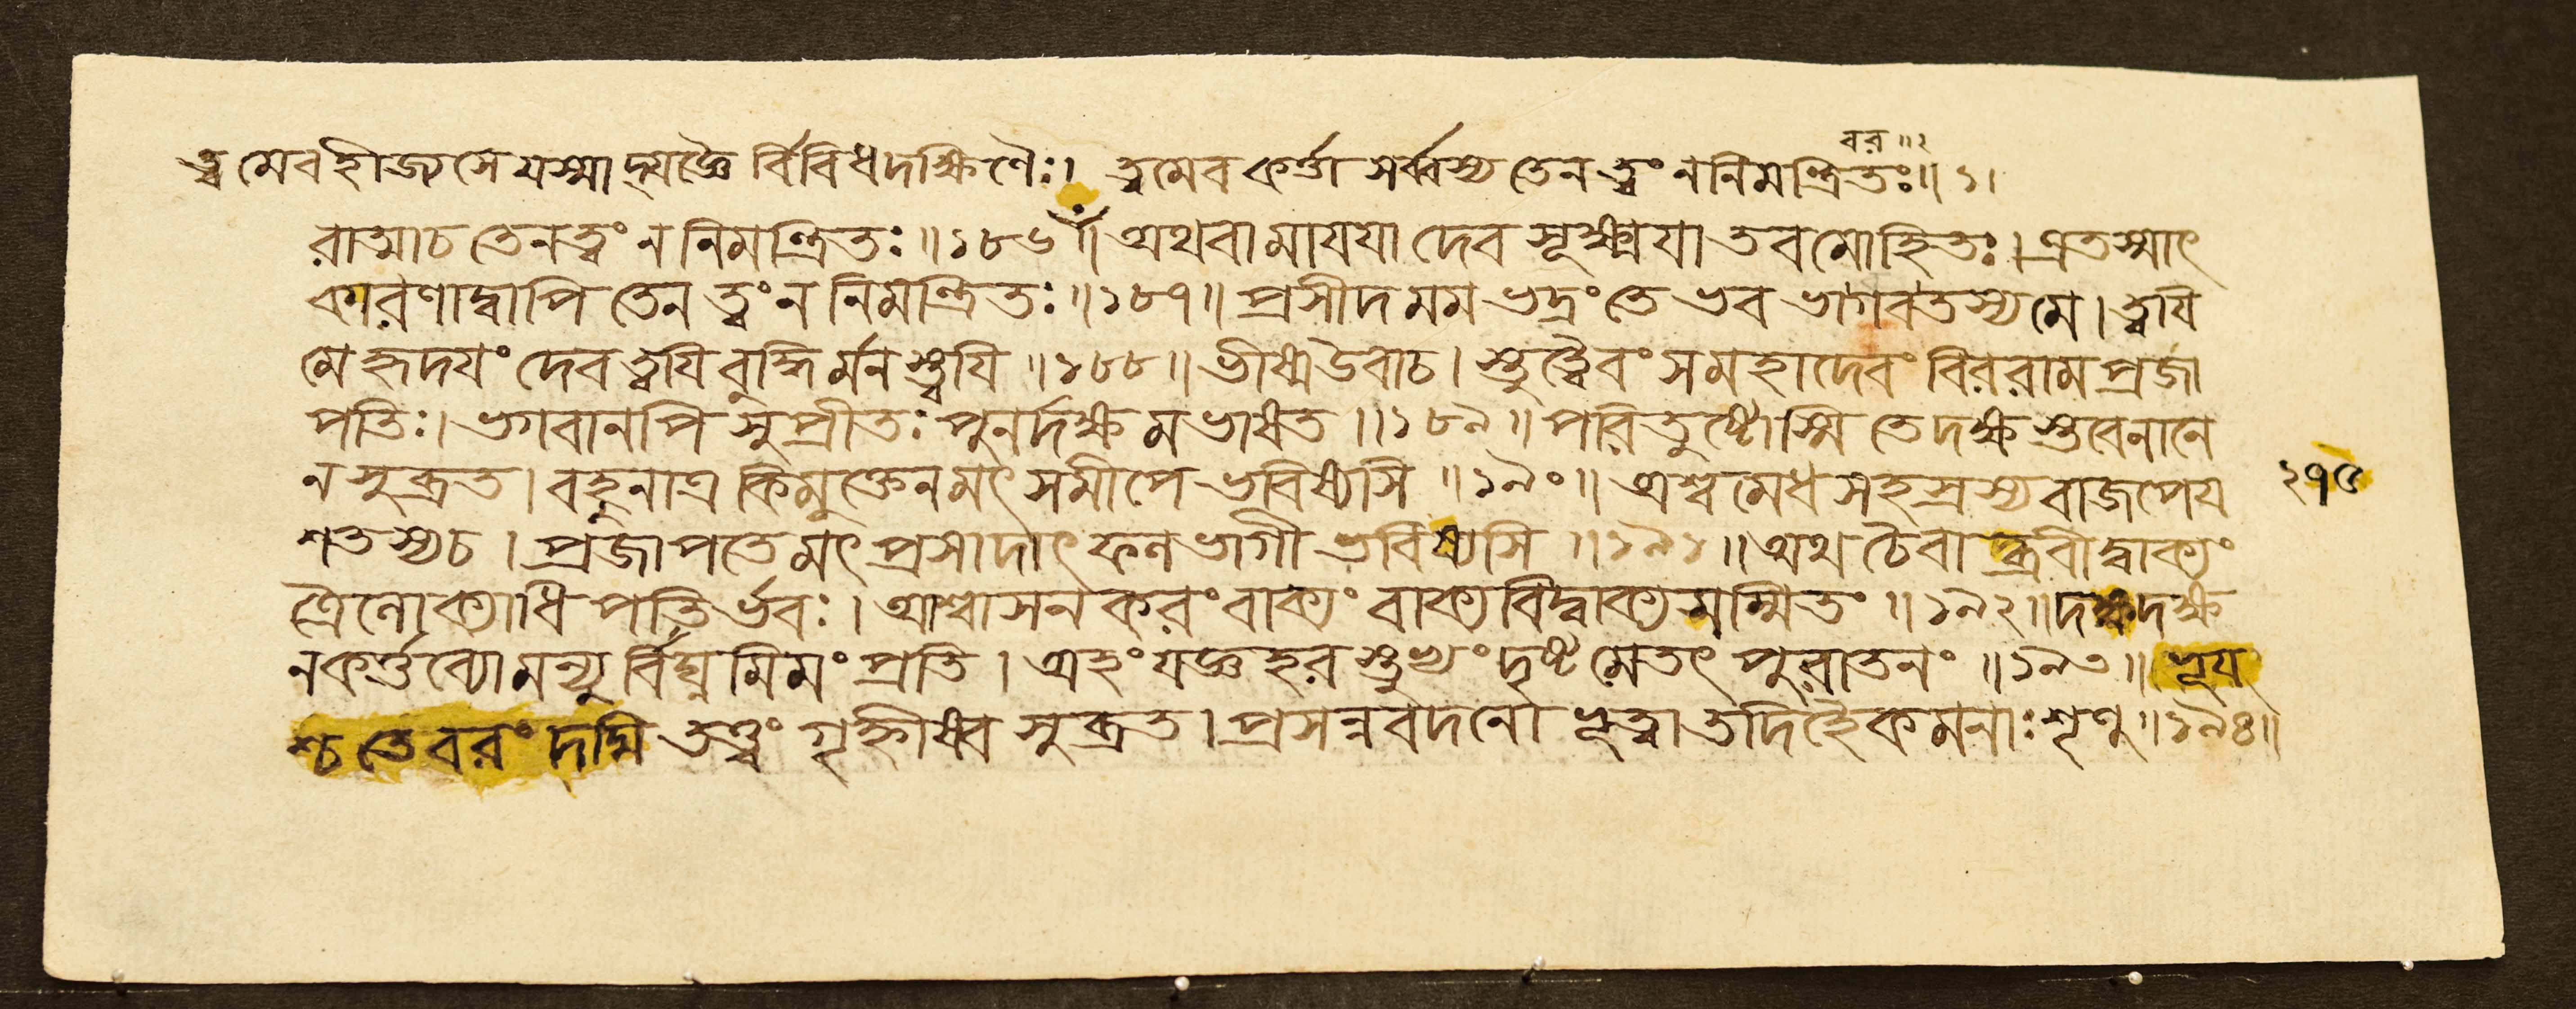 বর ॥ ২
ত্বমেবহীজ্যসে যস্মাদ্যজ্ঞৈর্বিবিধদক্ষিণৈঃ। ত্বমেব কর্ত্তা সর্ব্বস্য তেন ত্বং ন নিমন্ত্রিতঃ॥ ১।
রাত্মাচ তেন ত্বং ন নিমন্ত্রিতঃ॥১৮৬॥ অথবা মায়য়া দেব সূক্ষ্ময়া তব মোহিতঃ। এতস্মাৎ
কারণাদ্বাপি তেন ত্বং ন নিমন্ত্রিতঃ॥১৮৭॥ প্রসীদ মম ভদ্রং তে ভব ভাগবতস্য মে। ত্বয়ি
মে হৃদয়ং দেব ত্বয়ি বুদ্ধির্মনস্ত্বয়ি ॥১৮৮॥ ভীষ্ম উবাচ। স্তুত্বৈবং স মহাদেবং বিররাম প্রজা
পতিঃ। ভগবানপি সুপ্রীতঃ পুনর্দক্ষমভাষত ॥১৮৯॥ পরিতুষ্টোস্মি তে দক্ষ স্তবেনানে
ন সুব্রত। বহুনাত্র কিমুক্তেন মৎ সমীপে ভবিষ্যসি ॥১৯০॥ অশ্বমেধ সহস্রস্য বাজপেয়
২৭৫
শতস্য চ। প্রজাপতে মৎ প্রসাদাৎ ফলভাগী ভবিষ্যসি ॥১৯১॥ অথৈবাব্রবীদ্বাক্যং
ত্রৈলোক্যাধিপতির্ভবঃ। আশ্বাসনকরং বাক্যং বাক্যবিদ্বাক্যসম্মিতং ॥১৯২॥ দক্ষ দক্ষ
ন কর্ত্তব্যো মন্যুর্বিঘ্নমিমং প্রতি। অহং যজ্ঞহরস্তুভ্যং দৃষ্টমেতৎ পুরাতনং ॥১৯৩॥ ভূয়
শ্চ তে বরং দদ্মি তং ত্বং গৃহ্ণীষ্ব সুব্রত। প্রসন্নবদনো ভূত্বা তদিহৈকমনাঃ শৃণু ॥১৯৪॥